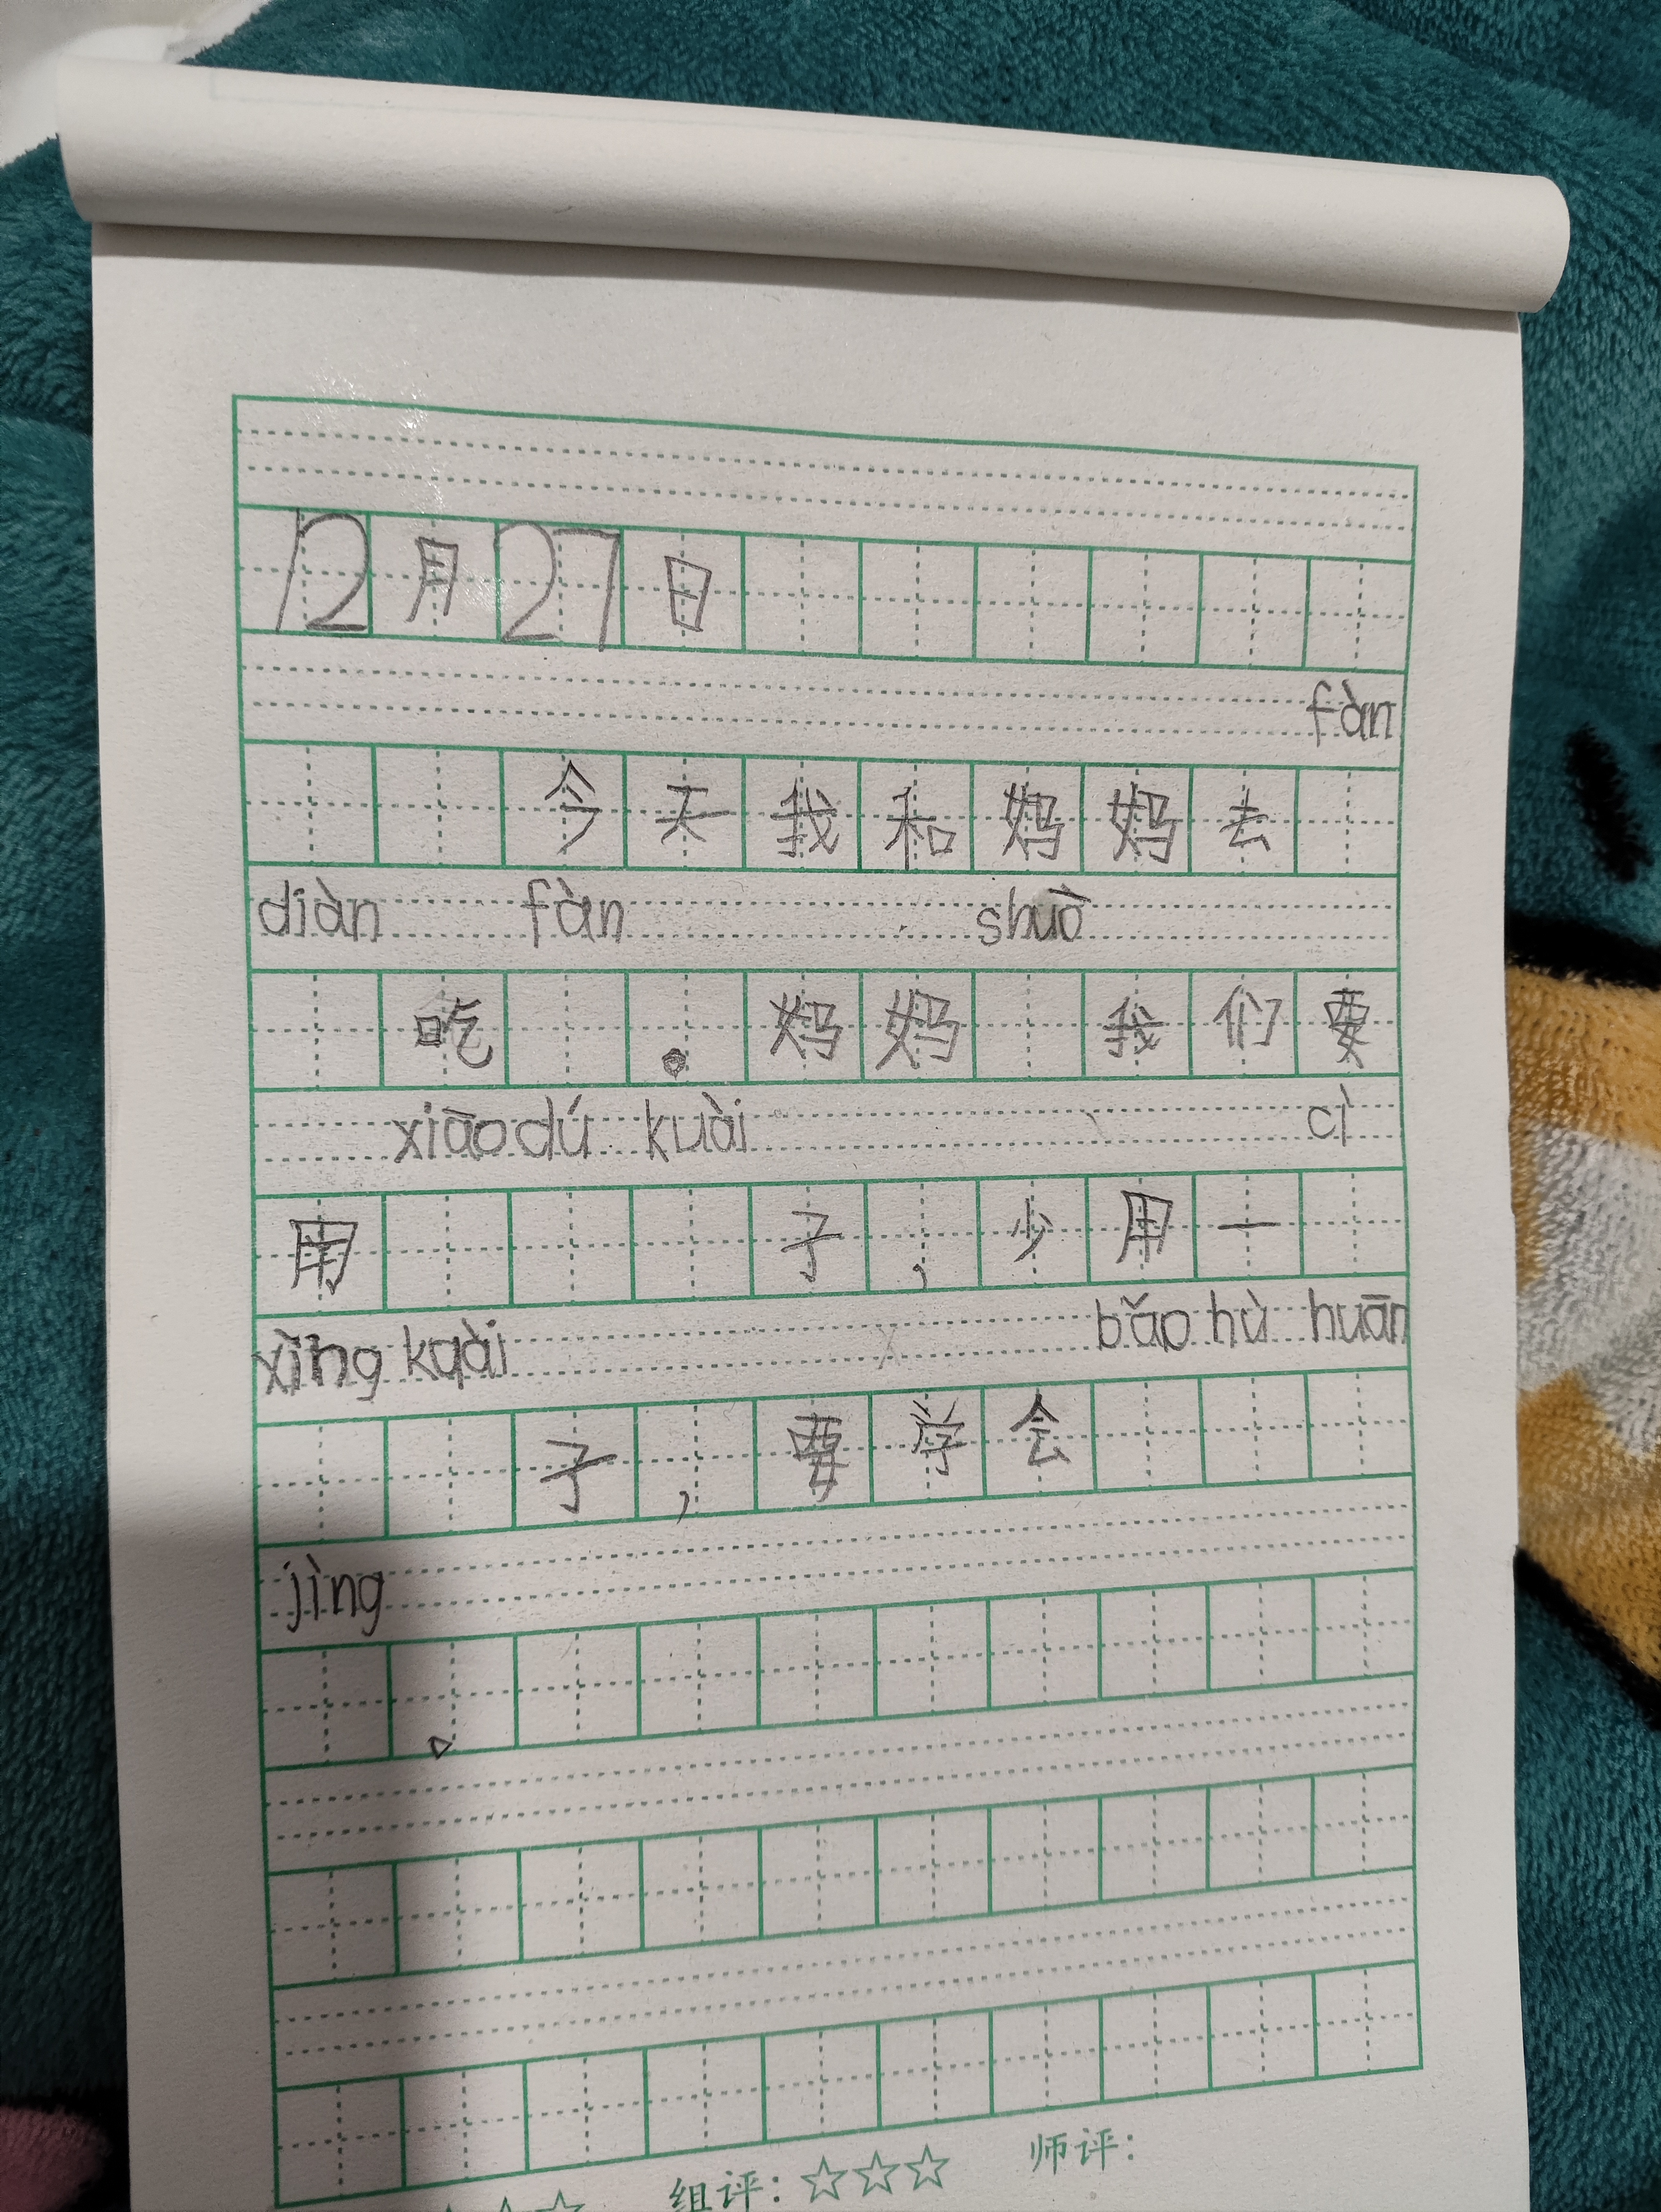 12月27日
fàn
今天我和妈妈去
diàn fàn shuō
吃 。妈妈 我们要
xiāo dú kuài cì
用 子,少用一
xìng kuài bǎo hù huān
子,要学会
jìng
。
组评:☆☆☆ 师评: